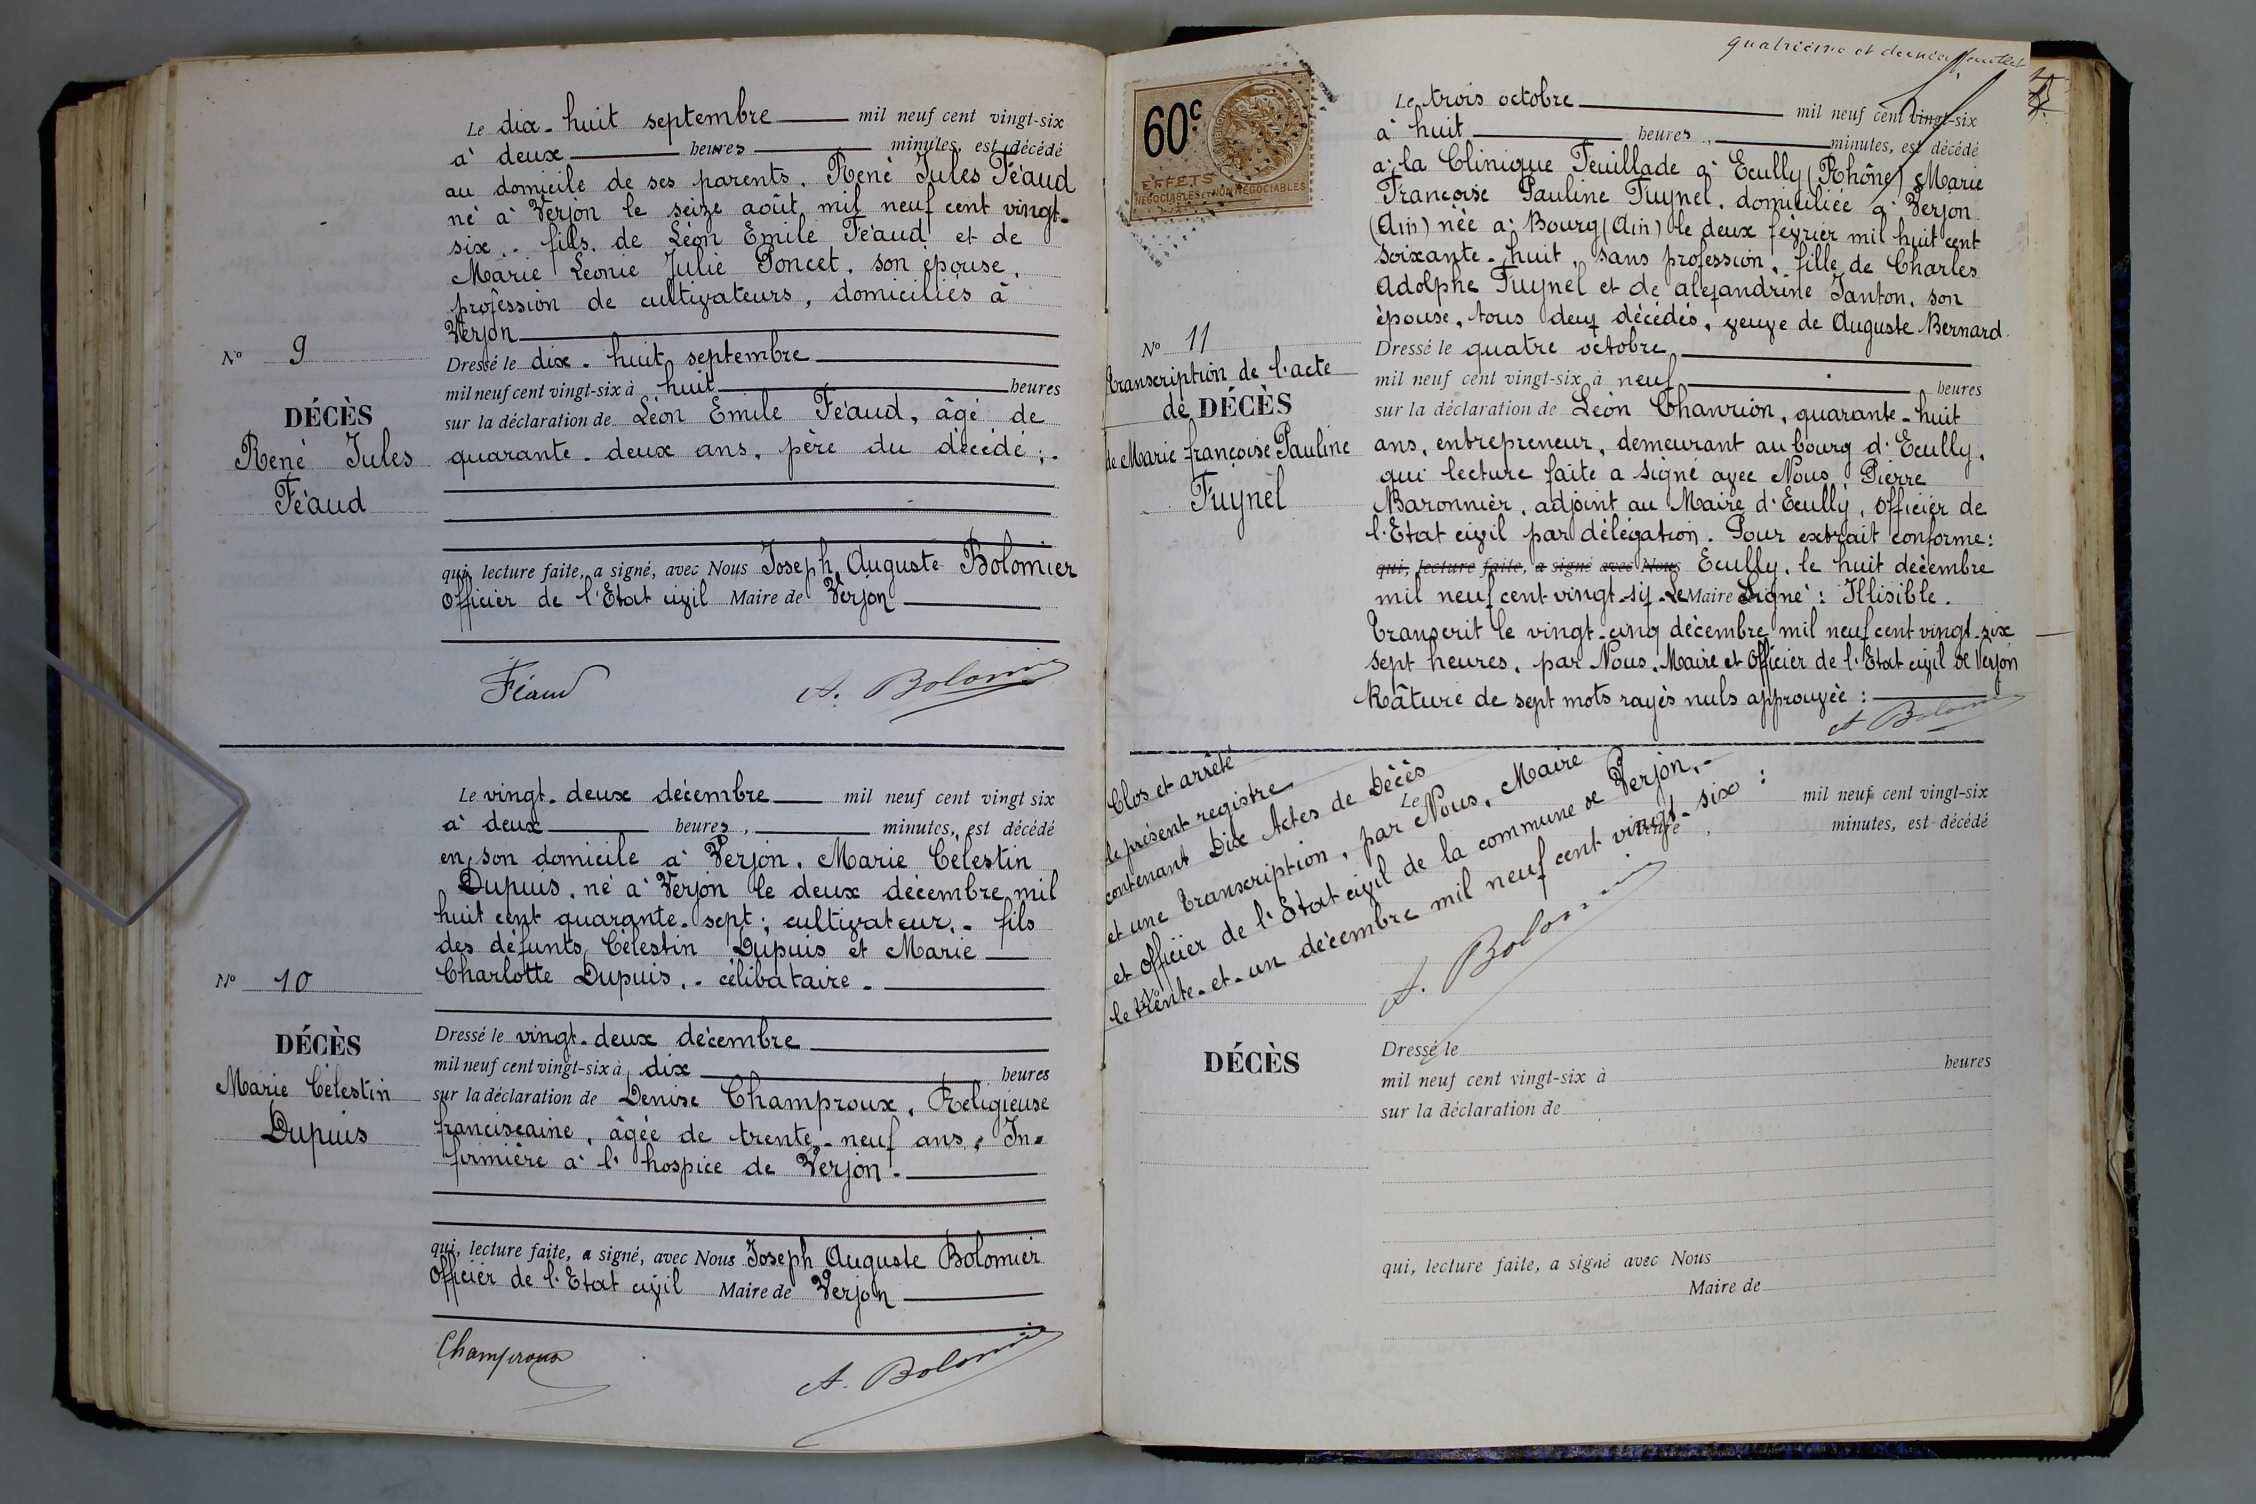 Le dix-huit septembre mil neuf cent vingt-six
à deux heures minutes, est décédé
au domicile de ses parents, René Jules Féaud
né à Verjon le seize août mil neuf cent vingt-
six. fils de Léon Emile Féaud et de
Marie Léonie Julie Poncet, son épouse,
profession de cultivateurs, domiciliés à
Verjon
N° 9
DÉCÈS
René Jules
Féaud
Dressé le dix-huit septembre
mil neuf cent vingt-six à huit heures
sur la déclaration de Léon Emile Féaud, âgé de
quarante-deux ans, père du décédé;
qui, lecture faite, a signé, avec Nous Joseph Auguste Bolomier
Officier de l'Etat civil Maire de Verjon
Féaud A. Bolomier
Le vingt-deux décembre mil neuf cent vingt six
à deux heures, minutes, est décédé
en son domicile à Verjon, Marie Célestin
Dupuis, né à Verjon le deux décembre mil
huit cent quarante-sept; cultivateur,- fils
des défunts Célestin Dupuis et Marie
Charlotte Dupuis,- célibataire-
N° 10
DÉCÈS
Marie Célestin
Dupuis
Dressé le vingt-deux décembre
mil neuf cent vingt-six à dix heures
sur la déclaration de Denise Champroux, Religieuse
franciscaine, âgée de trente-neuf ans, In-
firmière à l'hospice de Verjon-
qui, lecture faite, a signé, avec Nous Joseph Auguste Bolomier
Officier de l'Etat civil Maire de Verjon
Champroux A. Bolomier
quatrième et dernier feuillet
60c
EFFETS
NÉGOCIABLES ET NON NÉGOCIABLES
Le trois octobre mil neuf cent vingt-six
à huit heures, minutes, est décédé
à la Clinique Feuillade à Ecully (Rhône) Marie
Françoise Pauline Fuynel, domiciliée à Verjon
(Ain) née à Bourg (Ain) le deux février mil huit cent
soixante-huit, sans profession, fille de Charles
Adolphe Fuynel et de Alexandrine Janton, son
épouse, tous deux décédés, veuve de Auguste Bernard.
N° 11
Transcription de l'acte
de DÉCÈS
de Marie Françoise Pauline
Fuynel
Dressé le quatre octobre
mil neuf cent vingt-six à neuf heures
sur la déclaration de Léon Chanrion, quarante-huit
ans, entrepreneur, demeurant au bourg d'Ecully,
qui lecture faite a signé avec Nous Pierre
Maronnier, adjoint au Maire d'Ecully, Officier de
l'Etat civil par délégation. Pour extrait conforme:
qui, lecture faite, a signé avec Nous Ecully, le huit décembre
mil neuf cent vingt-six. Le Maire Signé: Illisible.
Transcrit le vingt-cinq décembre mil neuf cent vingt-six
sept heures, par Nous, Maire et Officier de l'Etat civil de Verjon
Râture de sept mots rayés nuls approuvée:
A Bolomier
Clos et arrêté
le présent registre
contenant Dix Actes de Décès
et une Transcription, par Nous, Maire
et Officier de l'Etat civil de la commune de Verjon,-
le trente-et-un décembre mil neuf cent vingt-six:
A. Bolomier
Le mil neuf cent vingt-six
heure, minutes, est décédé
N°
DÉCÈS
Dressé le
mil neuf cent vingt-six à heures
sur la déclaration de
qui, lecture faite, a signé avec Nous
Maire de